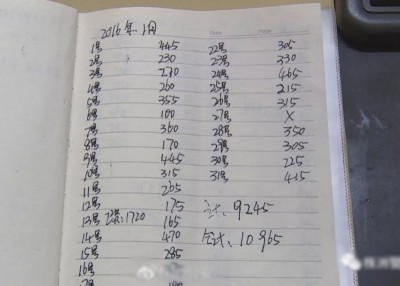 2016年1月
Date Page
1号 445
2号 230
3号 270
4号 260
5号 355
6号 100
7号 360
8号 170
9号 445
10号 315
11号 205
12号 175
13号 1720 165
14号 470
15号 285
16号
22号 305
23号 330
24号 465
25号 215
26号 315
27号 X
28号 350
29号 305
30号 225
31号 415
9245
合计: 10965